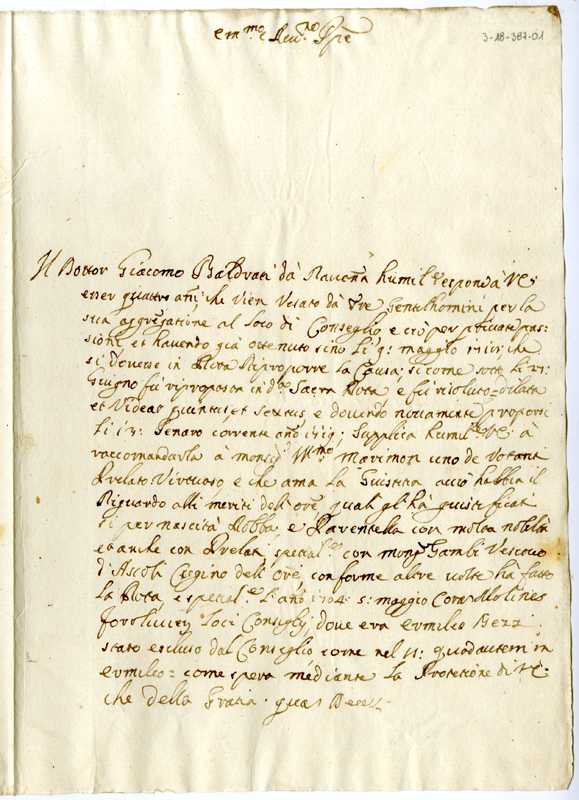 3-18-387-01
Em.mo e Reu.mo Ppe
Il Dottor Giacomo Baldrati da Rauena humil.te espone à VE:
esser quattro ani che vien Vesato dà tre Gentilhomini per la
sua aggregatione al loco di Conseglio, e ciò per priuate pas=
sioni, et hauendo già ottenuto sino li 9: maggio che
si douesse in Rota Riproporre la Causa; si come sotto li
Giugno fù riproposta in d.a Sacra Rota, e fù risoluto= Dilata
et Videat quintus, et sextus, e douendo nouamente proporsi
li 13: Genaro corrente año 1719; Supplica humil.te VE: à
raccomandarla à monsig.r Ill.mo Marimon uno de Votanti
Prelato Virtuoso, e che ama la Giustitia acciò habbia il
Riguardo alli meriti dell'ore, quali gl'hà giustificati
di per nascita Robba, e Parentella con molta nobiltà
et anche con Prelati, special.te con mons.r Gambi Vescouo
d'Ascoli Cugino dell'Ore, conforme altre uolte hà fatto
la Rota, e special.te l'año 1704: 5: maggio Coram Molines
Foroliuien Loci Consilij, doue era
stato escluso dal Conseglio come nel §: quod autem in
come spera mediante la Protetione di VE:
che della Gratia. quas Deus